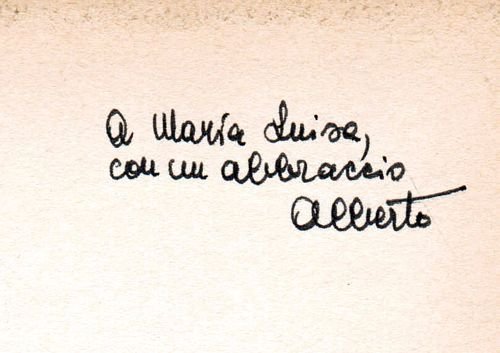 A Maria Luisa,
con un abbraccio
Alberto